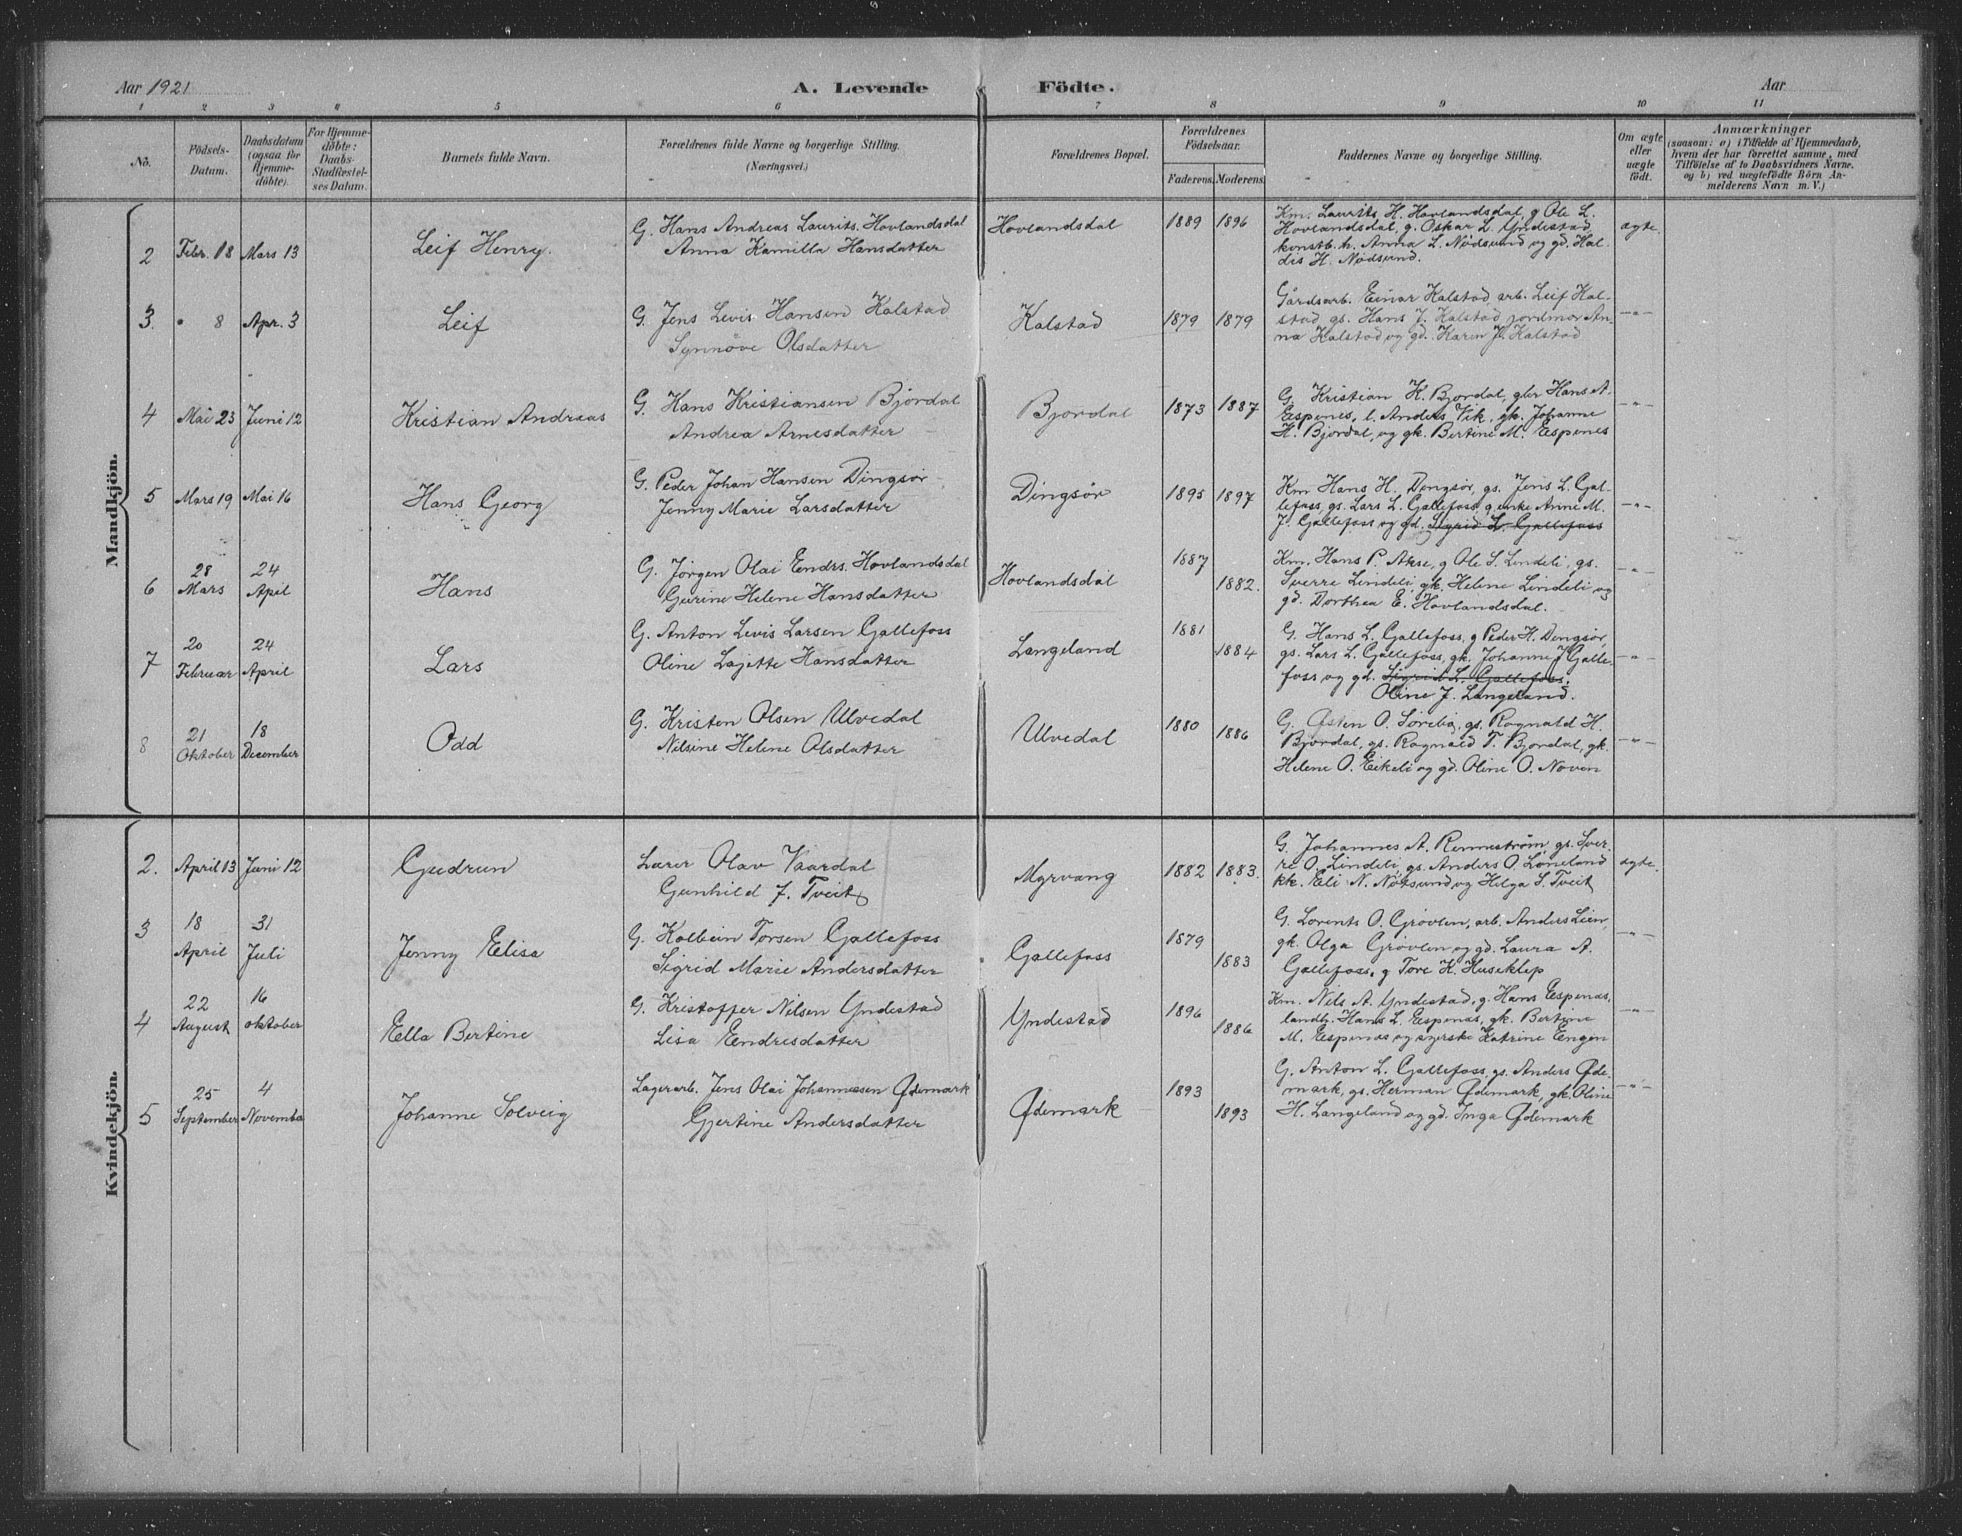 Aar 1921
A. Levende Födte.
Aar
1 2 3 4 5 6 7 8 9 10 11
No.
Födsels-
Datum.
Daabsdatum
(ogsaa for
Hjemme-
döbte).
For Hjemme-
döbte:
Daabs-
Stadfestel-
ses Datum.
Barnets fulde Navn.
Forældrenes fulde Navne og borgerlige Stilling.
(Næringsvei.)
Forældrenes Bopæl.
Forældrenes
Födselsaar.
Faderens. Moderens.
Faddernes Navne og borgerlige Stilling.
Om ægte
eller
uægte
födt.
Anmærkninger
(saasom: a) i Tilfælde af Hjemmedaab,
hvem der har forrettet samme, med
Tilföielse af to Daabsvidners Navne.
og b) ved uægtefödte Börn An-
melderens Navn m. V.)
Mandkjön.
2 Febr. 18 Mars 13 Leif Henry.
G. Hans Andreas Laurits. Hovlandsdal
Anna Kamilla Hansdatter
Hovlandsdal 1889 1896
Km. Laurits H. Hovlandsdal, g Ole L.
Hovlandsdal, g. Oskar L. Yndestad
kunstb. h. Anna L. Nödsund og gd. Hal-
dis H. Nødsund.
ægte.
3. " 8 Apr. 3 Leif
G. Jens Levis Hansen Kalstad
Synnöve Olsdatter
Kalstad 1879 1879
Gårdsarb. Einar Kalstad, arb. Leif Kal-
stad gs. Hans J. Kalstad, jordmor An-
na Kalstad og gd. Karen J. Kalstad
—"—
4 Mai 23 Juni 12 Kristian Andreas
G. Hans Kristiansen Bjordal
Andrea Arnesdatter
Bjordal 1873 1887
G. Kristian K. Bjordal, gbr Hans A.
Espenes, l. Anders Vik, gk. Johanne
H. Bjordal, og gk. Bertine M. Espenes
—"—
5 Mars 19 Mai 16 Hans Georg
G. Peder Johan Hansen Dingsör
Jenny Marie Larsdatter
Dingsör 1895 1897
Km Hans H. Dingsör, gs. Jens L. Gal-
lefoss, gs. Lars L. Gallefoss, g enke Anne M.
J. Gallefoss og gd. Sigrid L. Gallefoss
—"—
6 28 Mars 24 April Hans
G. Jörgen Olai Endrs. Hovlandsdal
Gurine Helene Hansdatter
Hovlandsdal 1887 1882.
Km. Hans P. Akse, g Ole S. Lindeli, gs.
Sverre Lindeli, gk. Helene Lindeli og
gd. Dorthea E. Hovlandsdal.
—"—
7 20 Februar 24 April Lars
G. Anton Levis Larsen Gallefoss
Oline Lajette Hansdatter
Langeland 1881 1884
G. Hans L. Gallefoss, g Peder H. Dingsör,
gs. Lars L. Gallefoss, gk. Johanne J Galle-
foss og gd. Sigrid L. Gallefoss.
Oline J. Langeland.
—"—
8 21 Oktober 18 December Odd
G. Kristen Olsen Ulvedal
Nilsine Helene Olsdatter
Ulvedal 1880 1886
G. Østen O. Sörebø, gs. Ragnald H.
Bjordal, gs. Ragnald T. Bjordal, gk.
Helene O. Eikeli og gd. Oline O. Noven
—"—
Kvindekjön.
2. April 13 Juni 12 Gudrun
Lærer Olav Vaardal
Gunhild J. Tveit
Myrvang 1882 1883.
G. Johannes A. Renneström, gs. Sver-
re O. Lindeli, gs. Anders O. Löneland
kk. Eli N. Nötsund og Helga S. Tveit
ægte.
3 18 April 31 Juli Jenny Elisa
G. Kolbein Torsen Gallefoss
Sigrid Marie Andersdatter
Gallefoss 1879 1883
G. Lorents O. Grövlen, arb. Anders Lien,
gk. Olga Grövlen og gd. Laura A.
Gallefoss, g Tore K. Huseklep
—"—
4 22 August 16 oktober Ella Bertine
G. Kristoffer Nilsen Yndestad
Lisa Endresdatter
Yndestad 1896 1886
Km. Nils A. Yndestad, g. Hans Espenæs,
landh. Hans L. Espenæs, gk. Bertine
M. Espenæs og syerske Katrine Engen
—"—
5 25 September 4 November Johanne Solveig
Lagerarb. Jens Olai Johannesen Ødemark
Gjertine Andersdatter
Ødemark 1893 1893
G. Anton L. Gallefoss, gs. Anders Øde-
mark, gs. Herman Ødemark, gk. Oline
H. Langeland og gd. Inga Ødemark
—"—